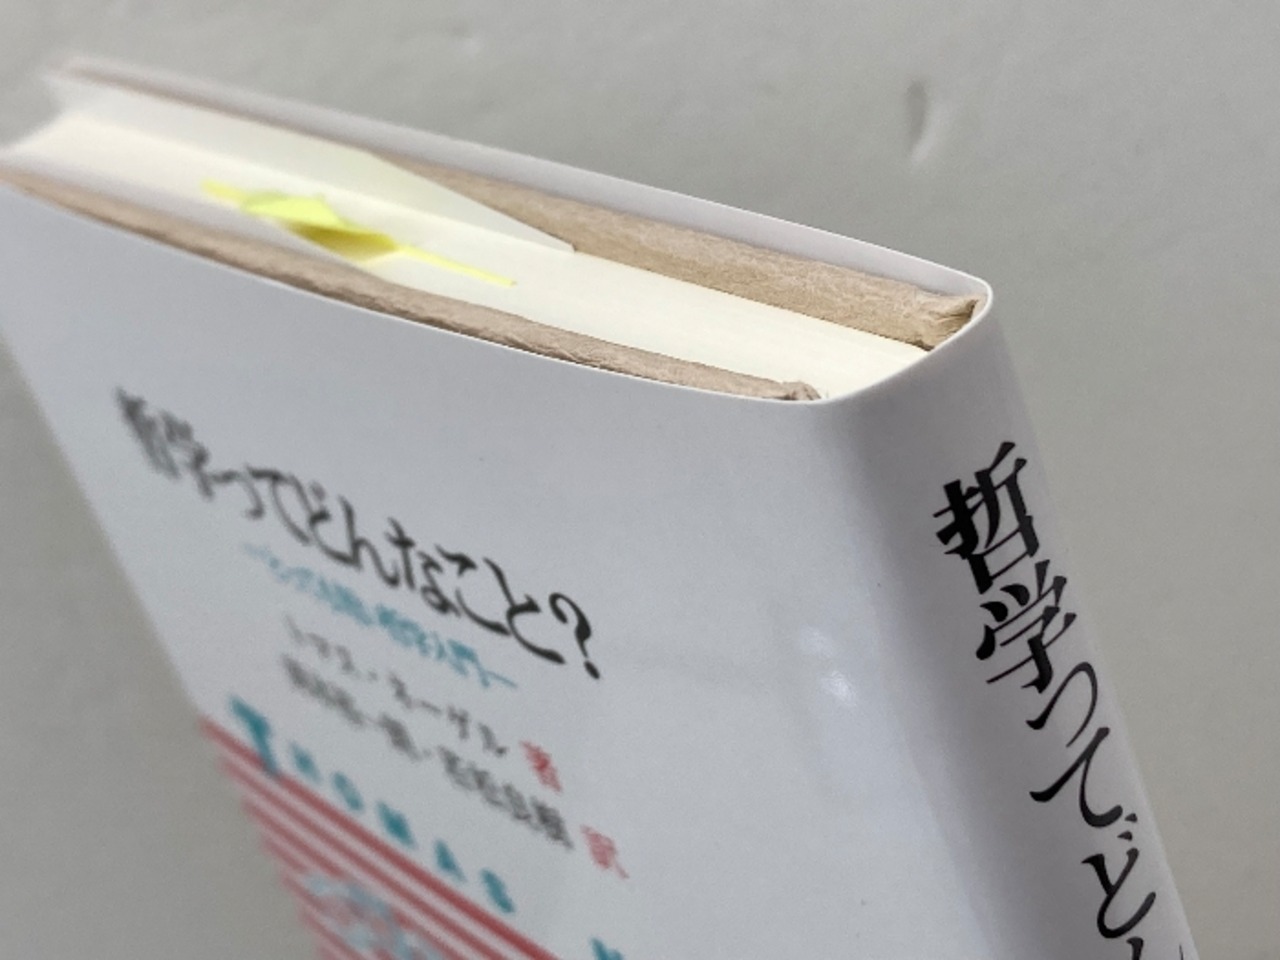 哲学ってどんなこと?
トマス・ネーゲル 著
訳
THOMAS
哲学ってどん